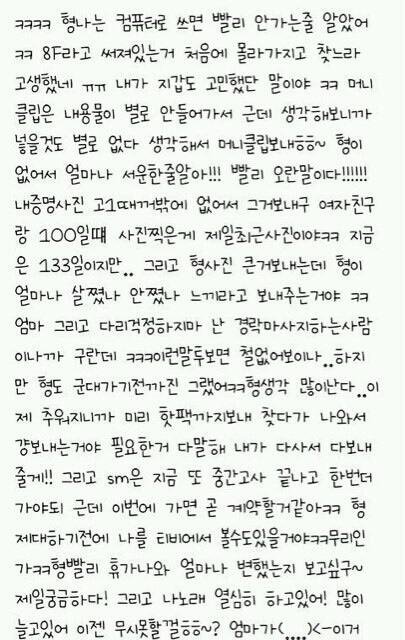 ㅋㅋㅋㅋ 형나는 컴퓨터로 쓰면 빨리 안가는줄 알았어
ㅋㅋ 8F라고 써져있는거 처음에 몰라가지고 찾느라
고생했네 ㅠㅠ 내가 지갑도 고민했단 말이야 ㅋㅋ 머니
클립은 내용물이 별로 안들어가서 근데 생각해보니까
넣을것도 별로 없다 생각해서 머니클립보내ㅎㅎ~ 형이
없어서 얼마나 서운한줄알아!!! 빨리 오란말이다!!!!!!
내증명사진 고1때꺼밖에 없어서 그거보내구 여자친구
랑 100일떄 사진찍은게 제일최근사진이야ㅋㅋ 지금
은 133일이지만.. 그리고 형사진 큰거보내는데 형이
얼마나 살쪘나 안쪘나 느끼라고 보내주는거야 ㅋㅋ
엄마 그리고 다리걱정하지마 난 경락마사지하는사람
이나까 구란데 ㅋㅋㅋ이런말투보면 철없어보이나..하지
만 형도 군대가기전까진 그랬어ㅋㅋ형생각 많이난다..이
제 추워지니까 미리 핫팩까지보내 찾다가 나와서
걍보내는거야 필요한거 다말해 내가 다사서 다보내
줄게!! 그리고 sm은 지금 또 중간고사 끝나고 한번더
가야되 근데 이번에 가면 곧 계약할거같아ㅋㅋ 형
제대하기전에 나를 티비에서 볼수도있을거야ㅋㅋ무리인
가ㅋㅋ형빨리 휴가나와 얼마나 변했는지 보고싶구~
제일궁금하다! 그리고 나노래 열심히 하고있어! 많이
늘고있어 이젠 무시못할껄ㅎㅎ~? 엄마가(....)<-이거